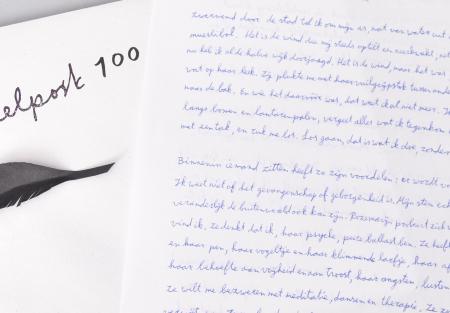 elpost 100
zwervend door de stad tol ik om mijn as, nat van water uit
Het is de wind die mij steeds optilt en neerkwakt,
nu heb ik al de halve wijk doorjaagd. Het is de wind, maar het was
wat op haar leek. Zij plukte me met haar vuilgrijpstok tussen
naar de bak. En wie het daarvóór was, dat weet ik al niet meer.
lange bomen en lantarenpalen, vergeet alles wat ik tegenkom
met een tak, en ruk me los. Los gaan, dat is wat ik doe, zonder
Binnenin iemand zitten heeft zo zijn voordelen: er wordt
Ik weet niet of het gevangenschap of geborgenheid is. Mijn stem
veranderlijk de buitenwereld ook kan zijn. Rozemarijn probeert zich
vind ik, ze denkt dat ik, haar psyche, pure ballast ben. Ze heeft
en haar pen, haar vogeltje en haar klimmende laefje, haar
haar behoefte aan vrijheid en aan troost, haar angsten, lusten
ze wilt me bezweren met meditatie, dansen en therapie. Ze